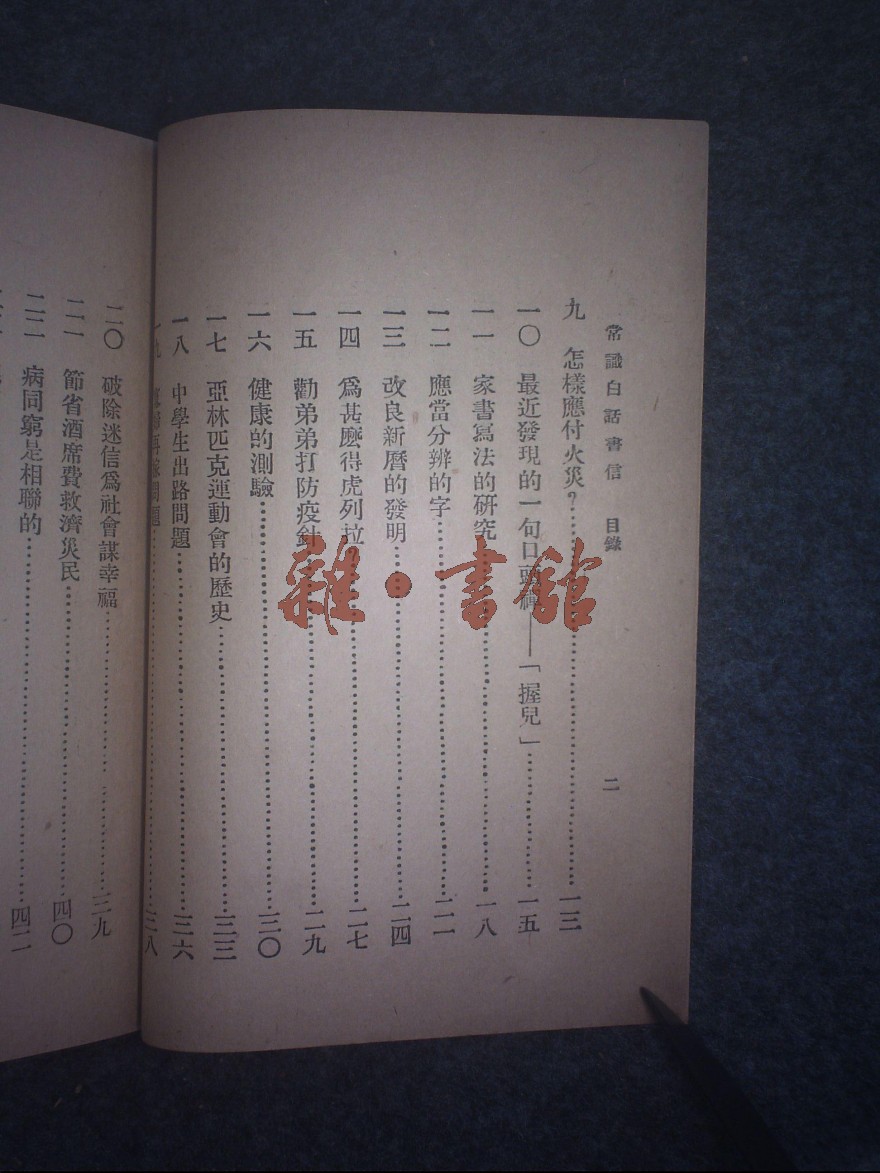 常識白話書信 目錄 二
九 怎樣應付火災?……一三
一〇 最近發現的一句口頭禪——「握兒」……一五
一一 家書寫法的研究……一八
一二 應當分辨的字……二一
一三 改良新曆的發明……二四
一四 爲甚麽得虎列拉?……二七
一五 勸弟弟打防疫針……二九
一六 健康的測驗……三〇
一七 亞林匹克運動會的歷史……三三
一八 中學生出路問題……三六
一九 再嫁問題……三八
二〇 破除迷信爲社會謀幸福……三九
二一 節省酒席費救濟災民……四〇
二二 病同窮是相聯的……四二
雜·書館